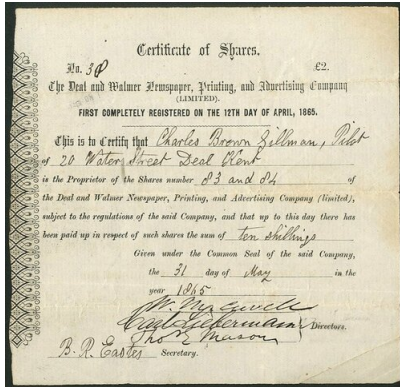 Certificate of Shares.
No. 38 £2.
The Deal and Walmer Newspaper, Printing, and Advertising Company
(LIMITED).
FIRST COMPLETELY REGISTERED ON THE 12TH DAY OF APRIL, 1865.
This is to Certify that Charles Brown Zillman, Pilot
of 20 Water Street Deal Kent
is the Proprietor of the Shares number 83 and 84 of
the Deal and Walmer Newspaper, Printing, and Advertising Company (limited),
subject to the regulations of the said Company, and that up to this day there has
been paid up in respect of such shares the sum of ten shillings
Given under the Common Seal of the said Company,
the 31 day of May in the
year 1865
W.
Carl Liebermann Directors.
Thos E Mason
B. R. Eastes Secretary.